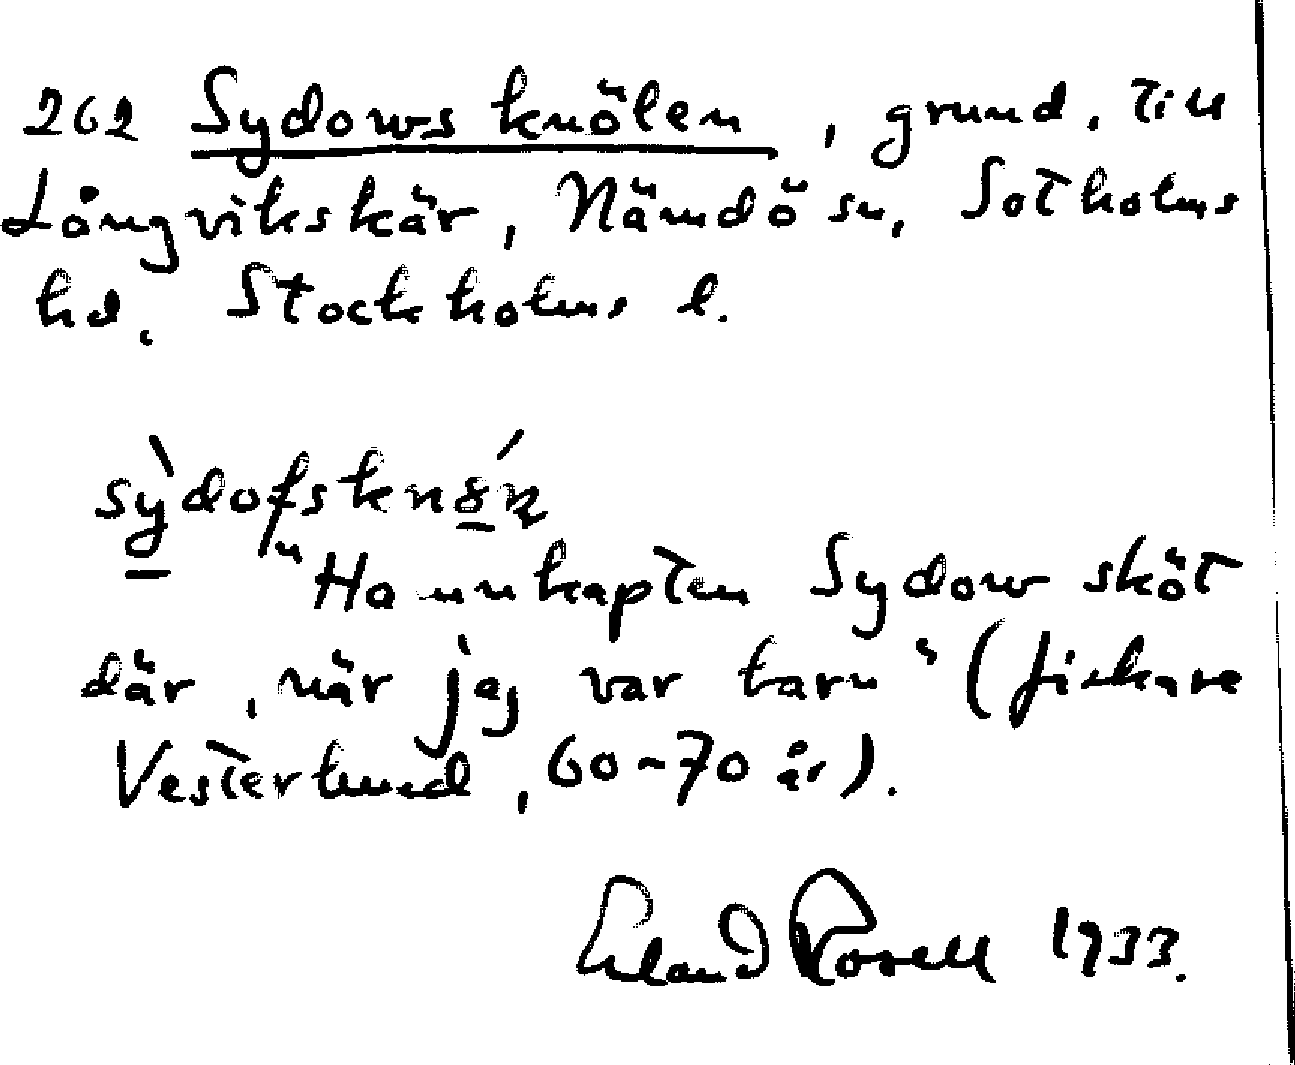 262 Sydows knölen, grund, till
Långvikskär, Nämdö sn, Sotholms
hd. Stockholms l.
sỳdofsknö́n
"Hamnkapten Sydow sköt
där, när jag var barn" (fiskare
Vesterlund, 60-70 år).
Erland Rosell 1933.